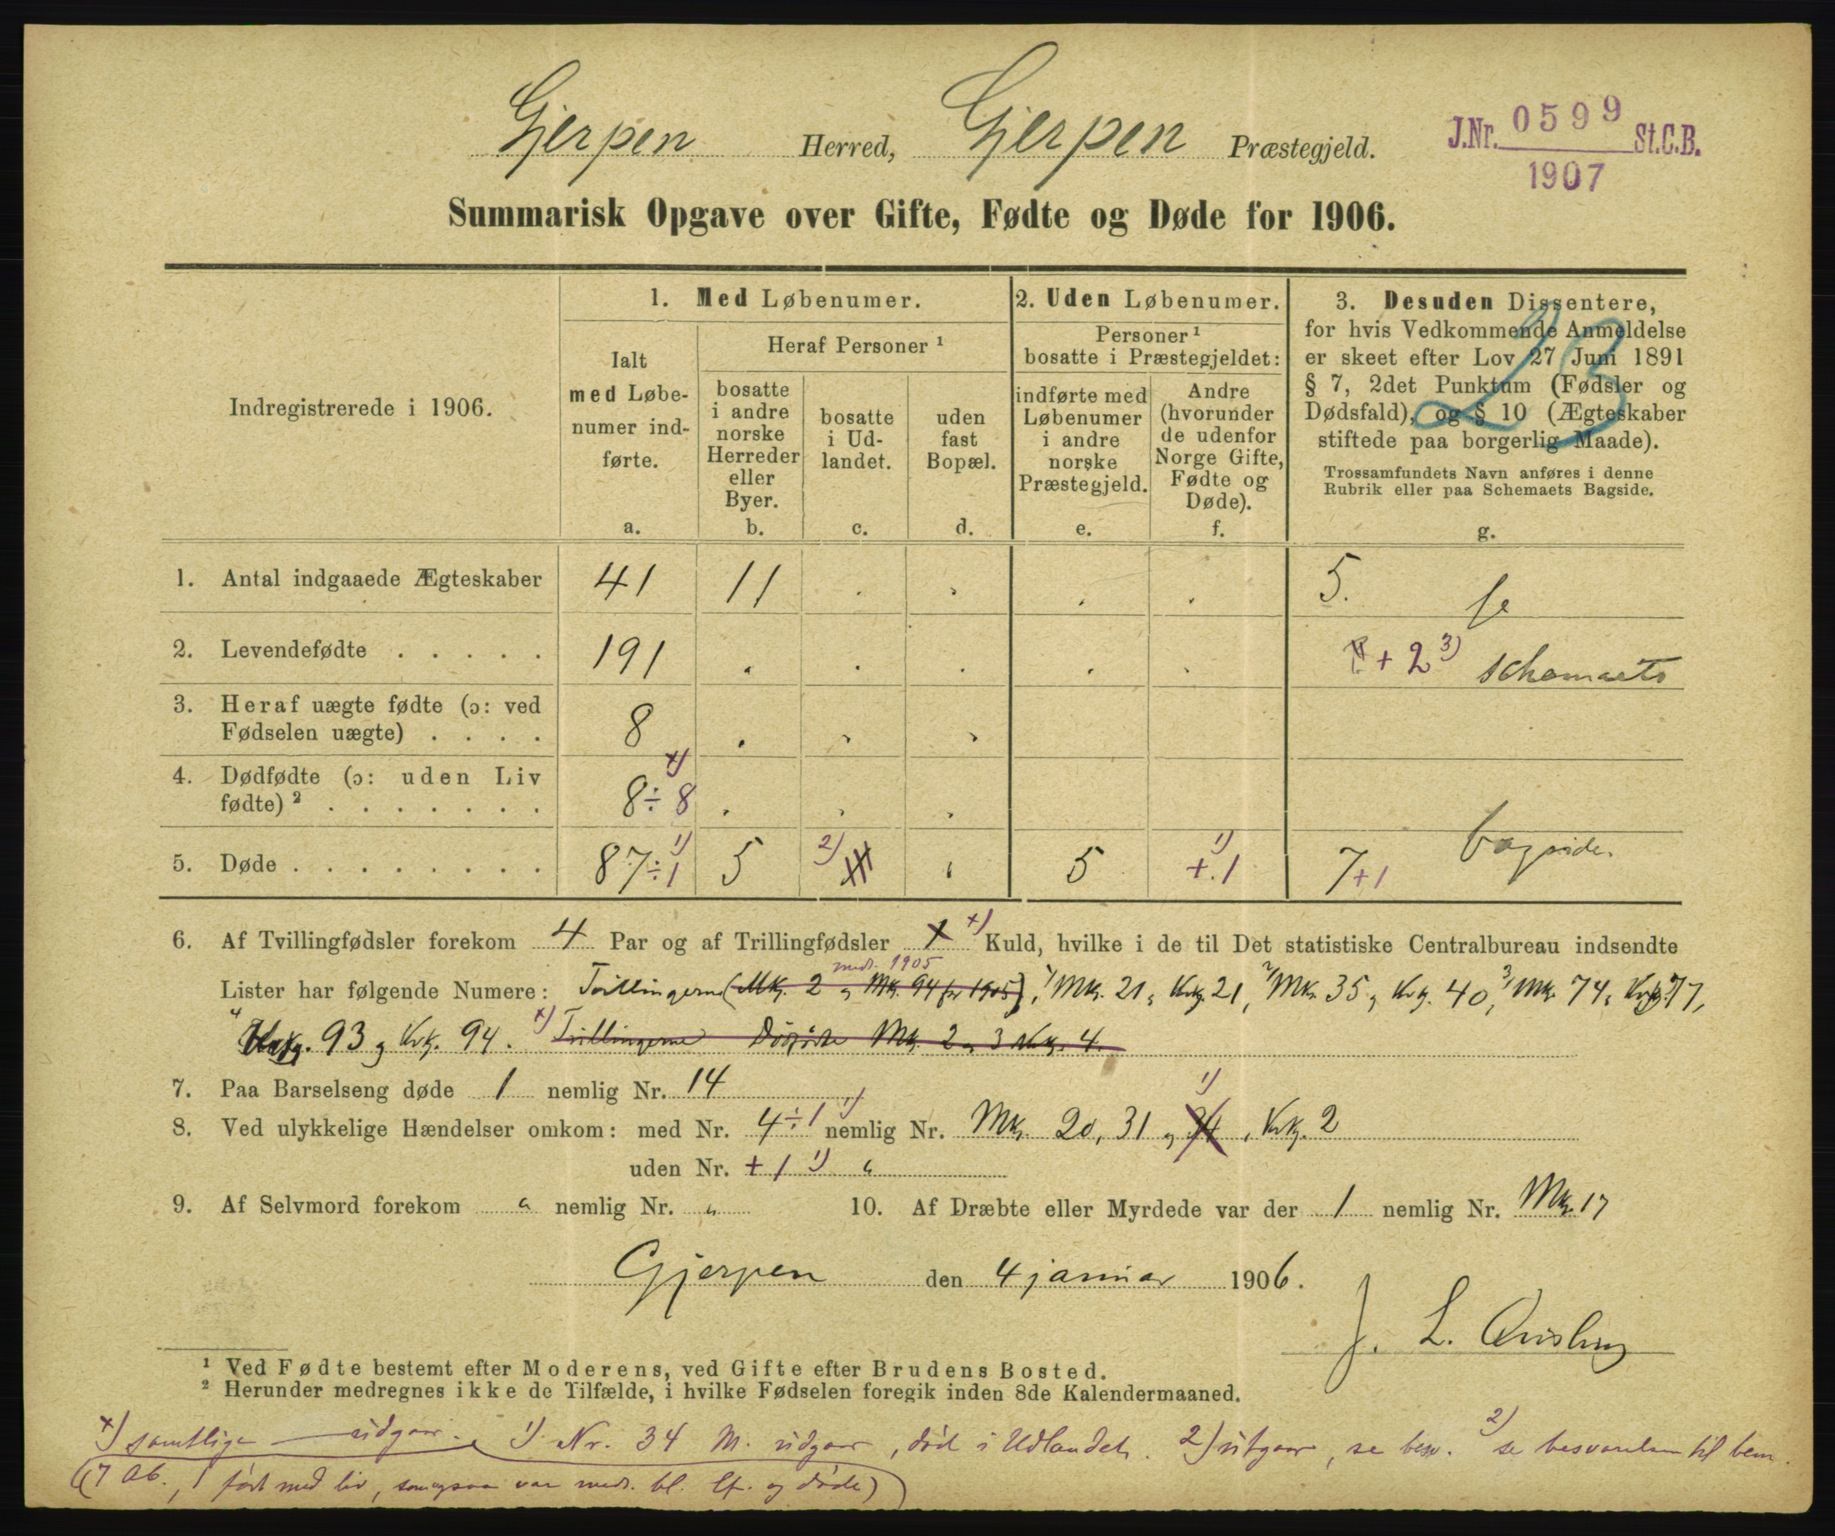 Gjerpen Herred, Gjerpen Præstegjeld.
J.Nr. 0599 St.C.B.
1907
Summarisk Opgave over Gifte, Fødte og Døde for 1906.
Indregistrerede i 1906.
1. Med Løbenumer.
Ialt
med Løbe-
numer ind-
førte.
a.
Heraf Personer ¹
bosatte
i andre
norske
Herreder
eller
Byer.
b.
bosatte
i Ud-
landet.
c.
uden
fast
Bopæl.
d.
2. Uden Løbenumer.
Personer ¹
bosatte i Præstegjeldet:
indførte med
Løbenumer
i andre
norske
Præstegjeld.
e.
Andre
(hvorunder
de udenfor
Norge Gifte,
Fødte og
Døde).
f.
3. Desuden Dissentere,
for hvis Vedkommende Anmeldelse
er skeet efter Lov 27 Juni 1891
§ 7, 2det Punktum (Fødsler og
Dødsfald), og § 10 (Ægteskaber
stiftede paa borgerlig Maade).
Trossamfundets Navn anføres i denne
Rubrik eller paa Schemaets Bagside.
g.
23
1. Antal indgaaede Ægteskaber 41 11 . . . . 5. se
2. Levendefødte . . . . . 191 . . . . . + 2 3) schemaets
3. Heraf uægte fødte (ɔ: ved
Fødselen uægte) . . . . 8 . . .
4. Dødfødte (ɔ: uden Liv
fødte) ² . . . . . . . 8 ÷ 8 x) . . .
5. Døde . . . . . . . . 87 ÷ 1 1) 5 2) 5 + 1 1) 7 + 1 bagside.
6. Af Tvillingfødsler forekom 4 Par og af Trillingfødsler 1 x) Kuld, hvilke i de til Det statistiske Centralbureau indsendte
medr. 1905
Lister har følgende Numere: Tvillingerne (Mk. 2 og Mk. 94 for 1905), 1) Mk. 21 og Kvk. 21, 2) Mk. 35 og Kvk. 40, 3) Mk. 74 og Kvk. 77,
4) 93 og Kvk. 94. x) Trillingerne Dødfødte Mk. 2 og 3 Kvk. 4.
7. Paa Barselseng døde 1 nemlig Nr. 14
8. Ved ulykkelige Hændelser omkom: med Nr. 4 ÷ 1 1) nemlig Nr. Mk. 20, 31 og 34 1), Kvk. 2
uden Nr. + 1 1) "
9. Af Selvmord forekom " nemlig Nr. "
10. Af Dræbte eller Myrdede var der 1 nemlig Nr. Mk. 17
Gjerpen den 4 januar 1906.
J. L. Qvisling
¹ Ved Fødte bestemt efter Moderens, ved Gifte efter Brudens Bosted.
² Herunder medregnes ikke de Tilfælde, i hvilke Fødselen foregik inden 8de Kalendermaaned.
x) samtlige udgaar. 1) Nr. 34 M. udgaar, død i Udlandet. 2) utgaar, se besv. 2) se besvarelsen til bem.
(7 Ab., 1 født med liv, somogsaa var medr. bl. lf. og døde)